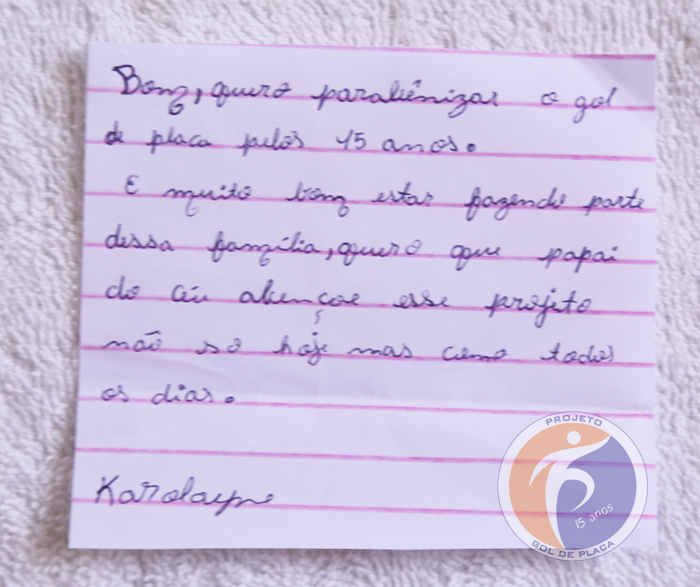 Bom, quero parabênizar o gol
de placa pelos 15 anos.
E muito bom estar fazendo parte
dessa família, quero que papai
do céu abençoe esse projeto
não so hoje mas como todos
os dias.
Karolayne
PROJETO
15 anos
GOL DE PLACA